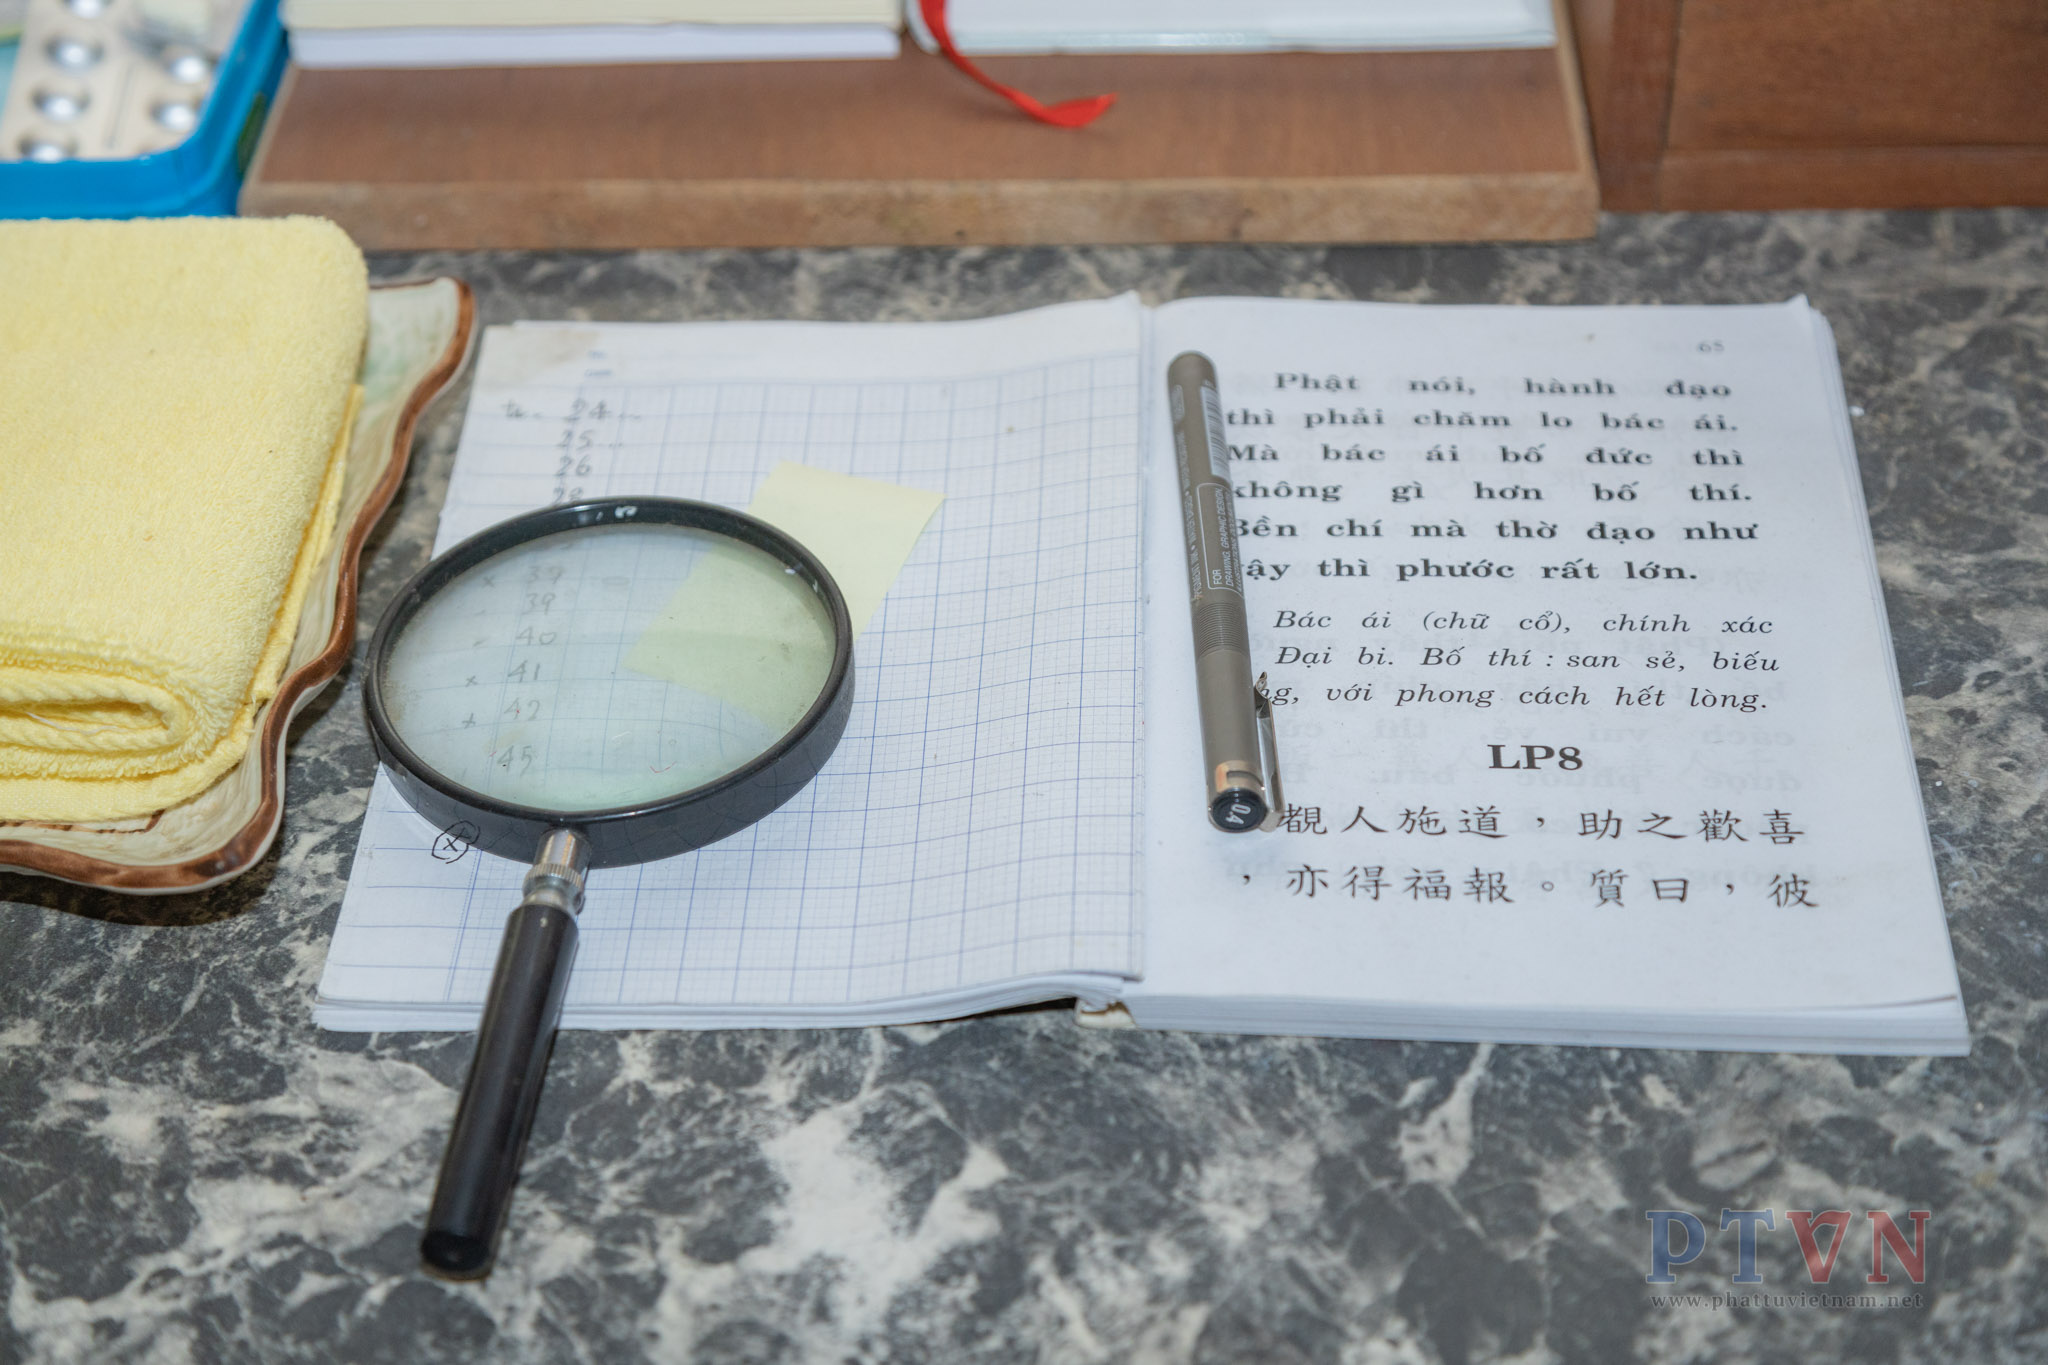 24
25
26
28
39
39
40
41
42
45
65
Phật nói, hành đạo
thì phải chăm lo bác ái.
Mà bác ái bố đức thì
không gì hơn bố thí.
Bền chí mà thờ đạo như
vậy thì phước rất lớn.
Bác ái (chữ cổ), chính xác
Đại bi. Bố thí : san sẻ, biếu
với phong cách hết lòng.
LP8
覩人施道，助之歡喜
，亦得福報。質曰，彼
FOR
DRAWING, GRAPHIC DESIGN,
0.4
PTVN
www.phattuvietnam.net